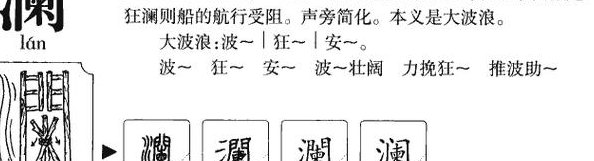 澜
lán
狂澜则船的航行受阻。声旁简化。本义是大波浪。
大波浪:波～｜狂～｜安～。
波～ 狂～ 安～ 波～壮阔 力挽狂～ 推波助～
瀾 瀾 瀾 澜